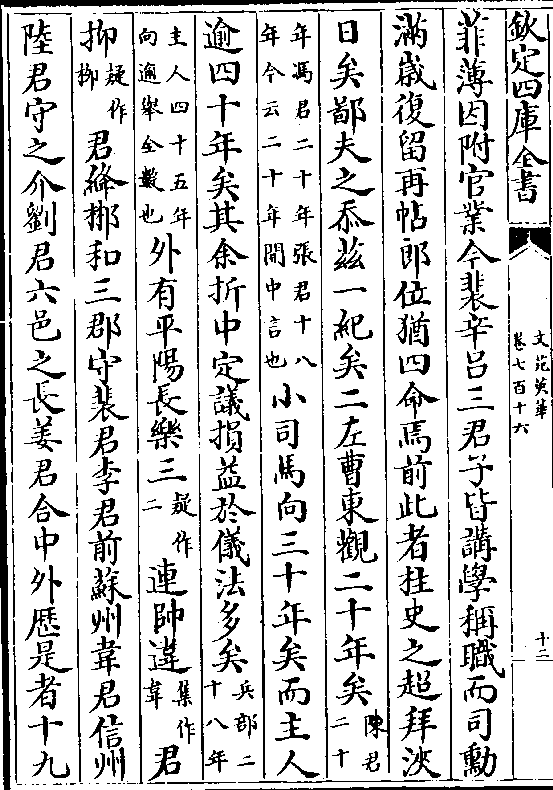 欽定四庫全書
文苑英華
卷七百十六
十二
菲薄因附官業今裴辛呂三君子皆講學稱職而司勲
滿歳復留再帖郎位猶四命焉前此者柱史之超拜浹
日矣鄙夫之忝茲一紀矣二左曹東觀二十年矣陳君二十
年馮君二十年張君十八年今云二十年間中言也小司馬向三十年矣而主人
逾四十年矣其余折中定議損益於儀法多矣兵部二十八年
主人四十五年向逾舉全數也外有平陽長樂三疑作二連帥違集作韋君
抑疑作栁君絳梆和三郡守裴君李君前蘇州韋君信州
陸君守之介劉君六邑之長姜君合中外歷是者十九